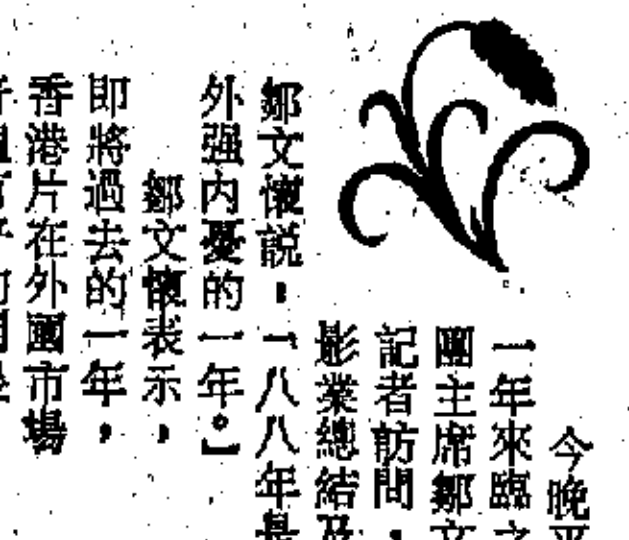 今晚
一年來臨之
團主席鄒文
記者訪問，
影業總結及
鄒文懷説，「八八年是
外强内憂的一年。」
鄒文懷表示，
即將過去的一年，
香港片在外國市場